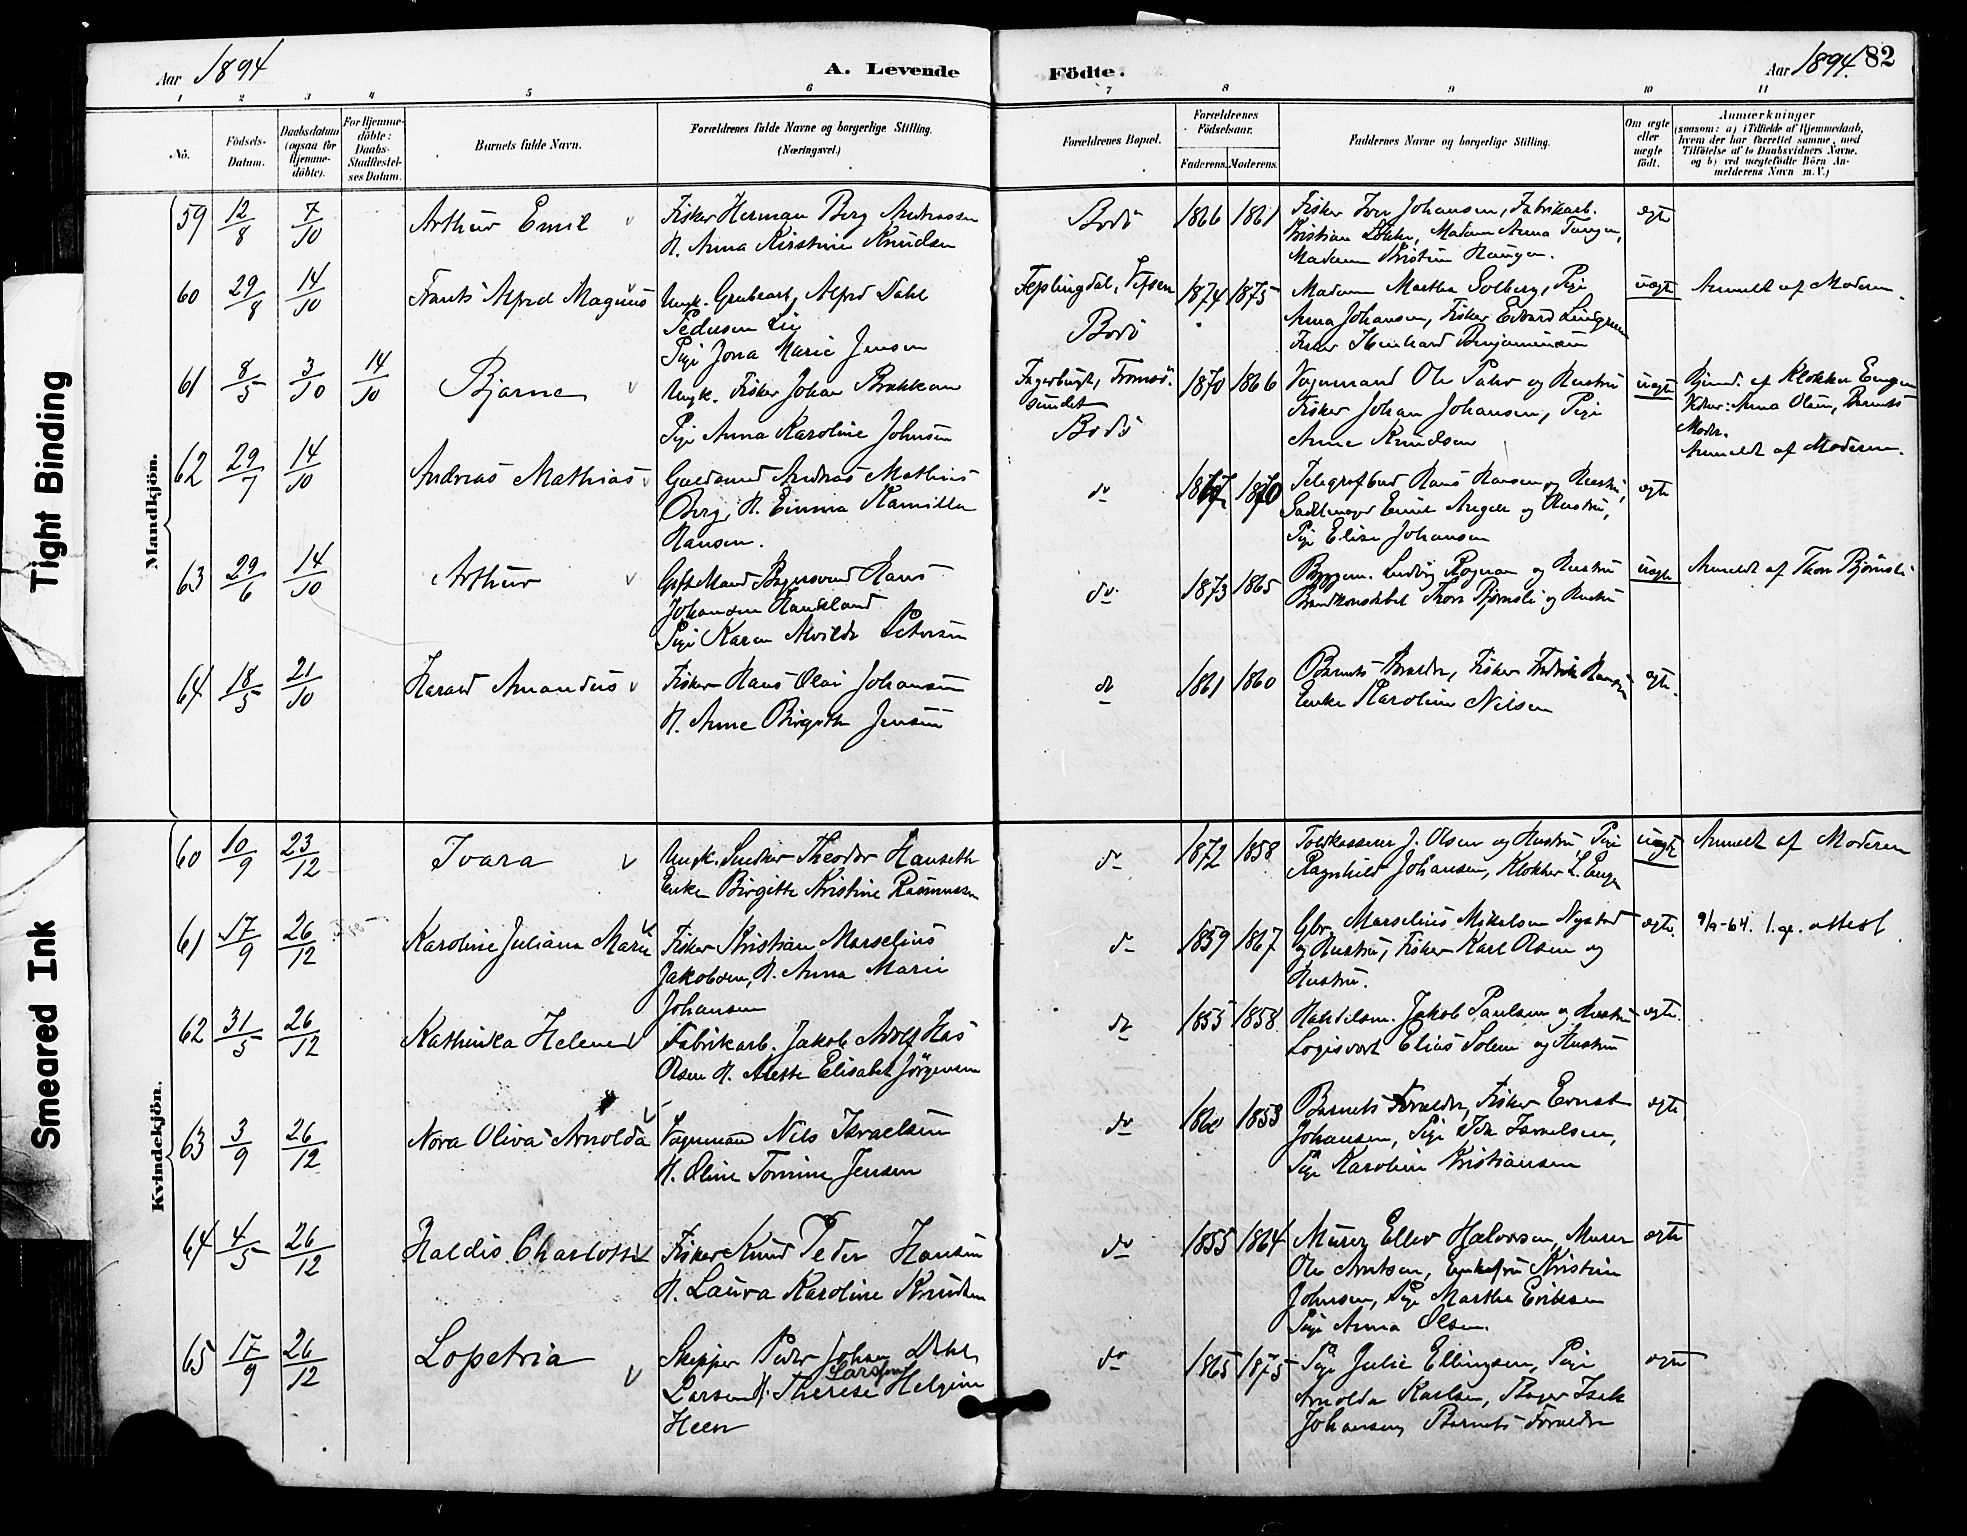 Aar 1894
A. Levende
Födte.
Aar 1894. 82
1 2 3 4 5 6 7 8 9 10 11
No.
Födsels-
Datum.
Daabsdatum
(ogsaa for
Hjemme-
döbte).
For Hjemme-
döbte:
Daabs-
Stadfæstel-
ses Datum.
Barnets fulde Navn.
Forældrenes fulde Navne og borgerlige Stilling.
(Næringsvei.)
Forældrenes Bopæl.
Forældrenes
Födselsaar.
Faderens. Moderens.
Faddernes Navne og borgerlige Stilling.
Om ægte
eller
uægte
födt.
Anmærkninger
(saasom: a) i Tilfælde af Hjemmedaab,
hvem der har forrettet samme, med
Tilföielse af to Daabsvidners Navne,
og b) ved uægtefödte Börn An-
melderens Navn m. V.)
Tight Binding
Smeared Ink
Mandkjön.
59 12/8 7/10 Arthur Emil
Fisker Herman Berg Andreassen
H. Anna Kirstine Knudsen
Bodö 1866 1861
Fisker Iver Johansen, Fabrikarb.
Kristian Madam Anna
Madam Kristine Haugen.
ægte
60 29/8 14/10 Frants Alfred Magnus
Ungk. Grubearb. Alfred Dahl
Pedersen Lie
Pige Jona Marie Jensen
Vefsen
Bodö
1874 1875
Madam Martha Solberg, Pige
Anna Johansen, Fisker Edvard Lindgren
Fisker Benjaminsen
uægte Anmeldt af Moderen.
61 8/5 3/10 14/10 Bjarne
Ungk. Fisker Johan Brækkan
Pige Anna Karoline Johnsen
Tromsö-
sundet
Bodö
1870 1866
Vognmand Ole og Hustru
Fisker Johan Johansen, Pige
Anne Knudsen
uægte
Hjemd. af Klokker Enge
Vidner: Anna Olsen, Barnets
Moder.
Anmeldt af Moderen.
62 29/7 14/10 Andreas Mathias
Andreas Mathias
Berg, H. Emma Kamilla
Hansen.
do 1867 1870
Telegrafbud Hans Hansen og Hustru,
Sadelmager Emil og Hustru,
Pige Elise Johansen
ægte
63 29/6 14/10 Arthur
Gift Mand Bagersvend Hans
Johansen Haukland
Pige Karen Alvilde Petersen
do 1873 1865
Ludvig Rognan og Hustru
Brandkonstabel Thor Bjørnsli og Hustru
uægte Anmeldt af Thor Bjørnsli
64 18/5 21/10 Harald Amandus
Fisker Hans Olai Johansen
H. Anne Birgitte Jensen
do 1861 1860
Barnets Forældre, Fisker Fredrik Hansen
Enke Karoline Nilsen
ægte.
Kvindekjön.
60 10/9 23/12 Ivara
Ungk. Snedker Theodor Hanseth
Enke Birgitte Kristine Rasmussen
do 1872 1858
Toldkasserer J. Olsen og Hustru Pige
Ragnhild Johansen, Klokker L. Enge
uægte Anmeldt af Moderen
61 17/9 26/12 Karoline Juliana Marie
Fisker Kristian Marselius
Jakobsen, H. Anna Marie
Johansen
do 1859 1867
Gbr. Marselius Mikalsen Nystad
og Hustru, Fisker Karl Olsen og
Hustru.
ægte. 9/9-64. 1. gr. attest.
62 31/5 26/12 Kathinka Helene
Fabrikarb. Jakob Adolf Hås
Olsen H. Anette Elisabet Jörgensen
do 1853 1858
Handelsm. Jakob Paulsen og Hustru
Logisvært Elias Solem og Hustru
ægte.
63 3/9 26/12 Nora Oliva Arnolda
Vognmand Nils Israelsen
H. Oline Tomine Jensen
do 1860 1853
Barnets Forældre, Fisker Ernst
Johansen, Pige Ida Israelsen,
Pige Karoline Kristiansen
ægte
64 4/5 26/12 Haldis Charlotte
Fisker Knud Peder Hansen
H. Laura Karoline Knudsen
do 1855 1864
Murer Ellev Halvorsen, Murer
Ole Arntsen, Enkefru Kristine
Johnsen, Pige Martha Eriksen
Pige Anna Olsen.
ægte
65 17/9 26/12 Lopetria
Skipper Peder Johan Dahl
Larsen H. Therese Helgine
Heen
do 1865 1875
Pige Julie Ellingsen, Pige
Arnolda Karlsen, Bager Isak
Johansen, Barnets Forældre
ægte